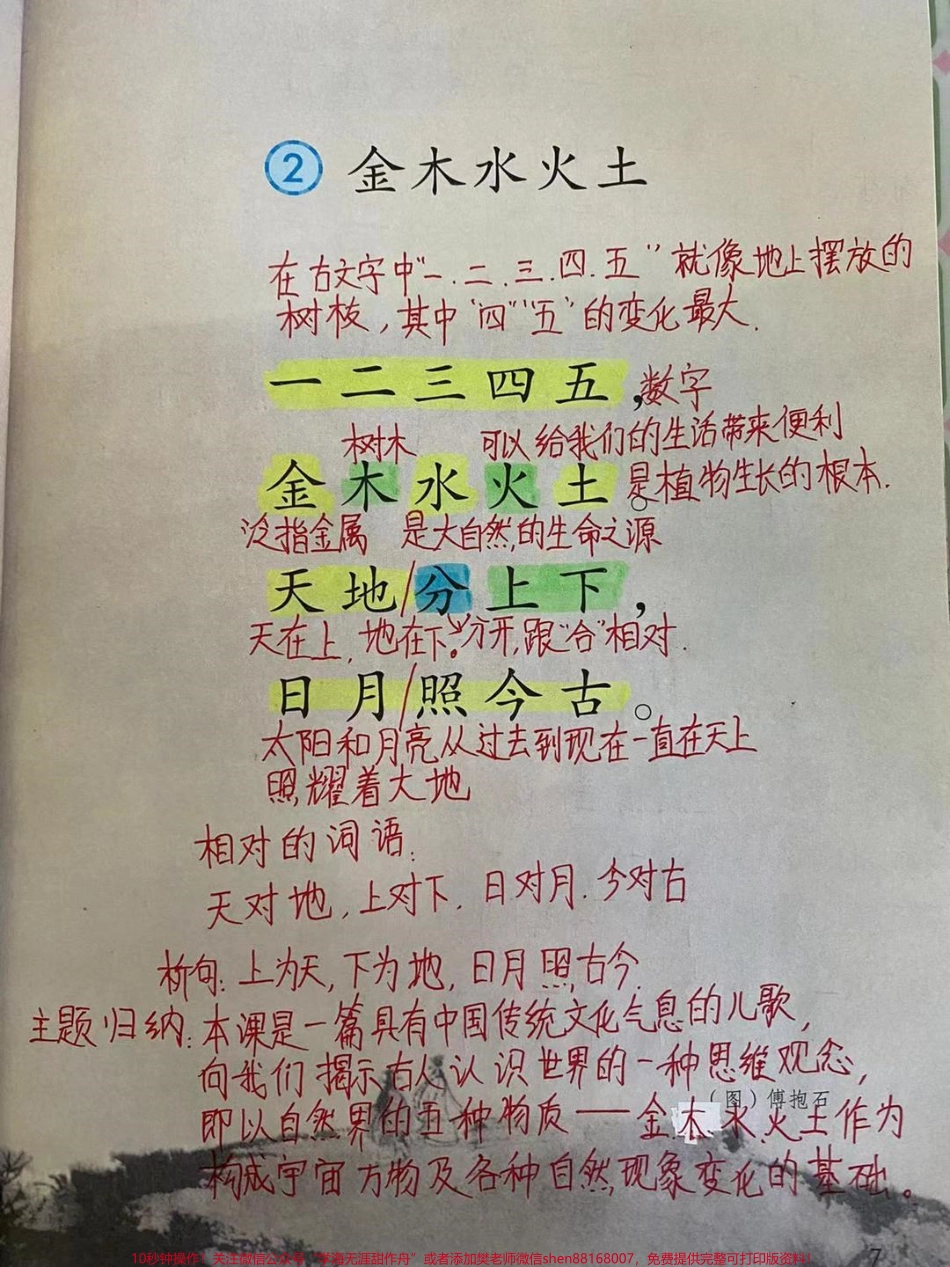 ② 金木水火土
在古文字中“一.二.三.四.五”就像地上摆放的
树枝，其中“四”“五”的变化最大.
一二三四五，数字
树木 可以给我们的生活带来便利
金木水火土。是植物生长的根本.
泛指金属 是大自然的生命之源
天地/分上下，
天在上，地在下。分开,跟“合”相对.
日月/照今古。
太阳和月亮从过去到现在一直在天上
照耀着大地
相对的词语:
天对地,上对下.日对月.今对古
析句:上为天,下为地,日月照古今.
主题归纳:本课是一篇具有中国传统文化气息的儿歌,
向我们揭示古人认识世界的一种思维观念,
（图）傅抱石
即以自然界的五种物质——金木水火土作为
构成宇宙万物及各种自然现象变化的基础。
10秒钟操作！关注微信公众号“学海无涯甜作舟”或者添加樊老师微信shen88168007，免费提供完整可打印版资料！
7